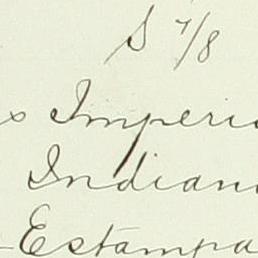 S 7/8
Imperi
Indian
Estampa